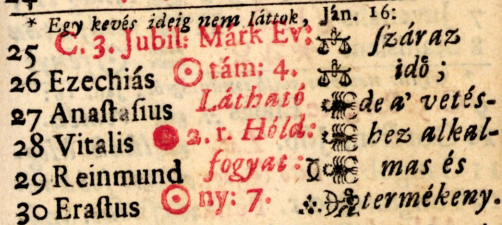 * Egy kevés ideig nem láttok, Ján. 16:
25 C. 3. Jubil: Márk Ev: ſzáraz
26 Ezechiás tám: 4. idő ;
27 Anaſtaſius Látható de a' vetés-
28 Vitalis a. r. Hóld: hez alkal-
29 Reinmund fogyat : mas és
30 Eraſtus ny: 7. termékeny.